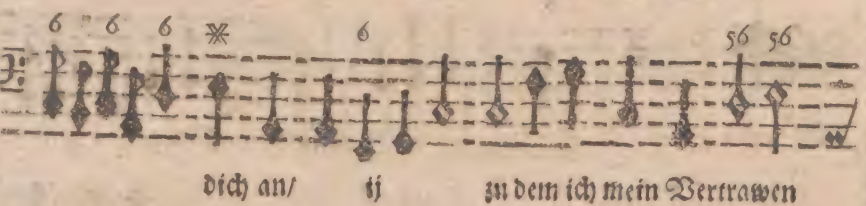 6 6 6 6 56 56
dich an/ ij zu dem ich mein Vertrawen